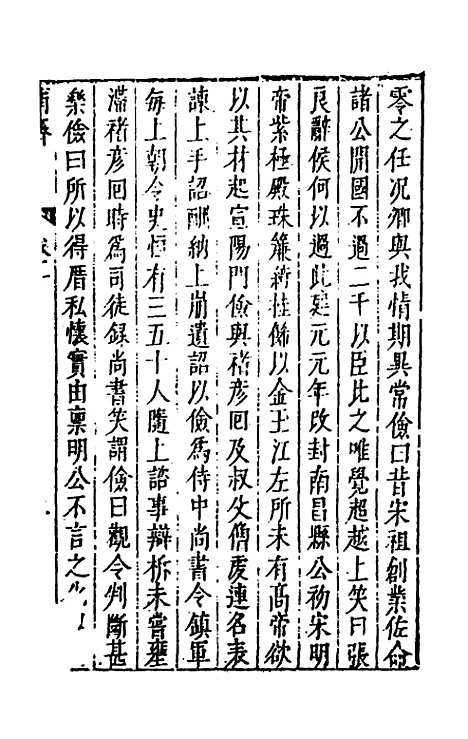 零之任况卿與我情期異常儉曰昔宋祖創業佐命
諸公開國不過二千以臣比之唯覺超越上笑曰張
良辭侯何以過此建元元年改封南昌縣公初宋明
帝紫極殿珠簾綺柱飾以金玉江左所未有高帝欲
以其材起宣陽門儉與褚彦回及叔父僧虔連名表
諫上手詔酬納上崩遺詔以儉為侍中尚書令鎮軍
每上朝令史恒有三五十人隨上諮事辯析未嘗壅
滯褚彦回時為司徒録尚書笑謂儉曰觀令判斷甚
樂儉曰所以得厝私懷實由禀明公不言之